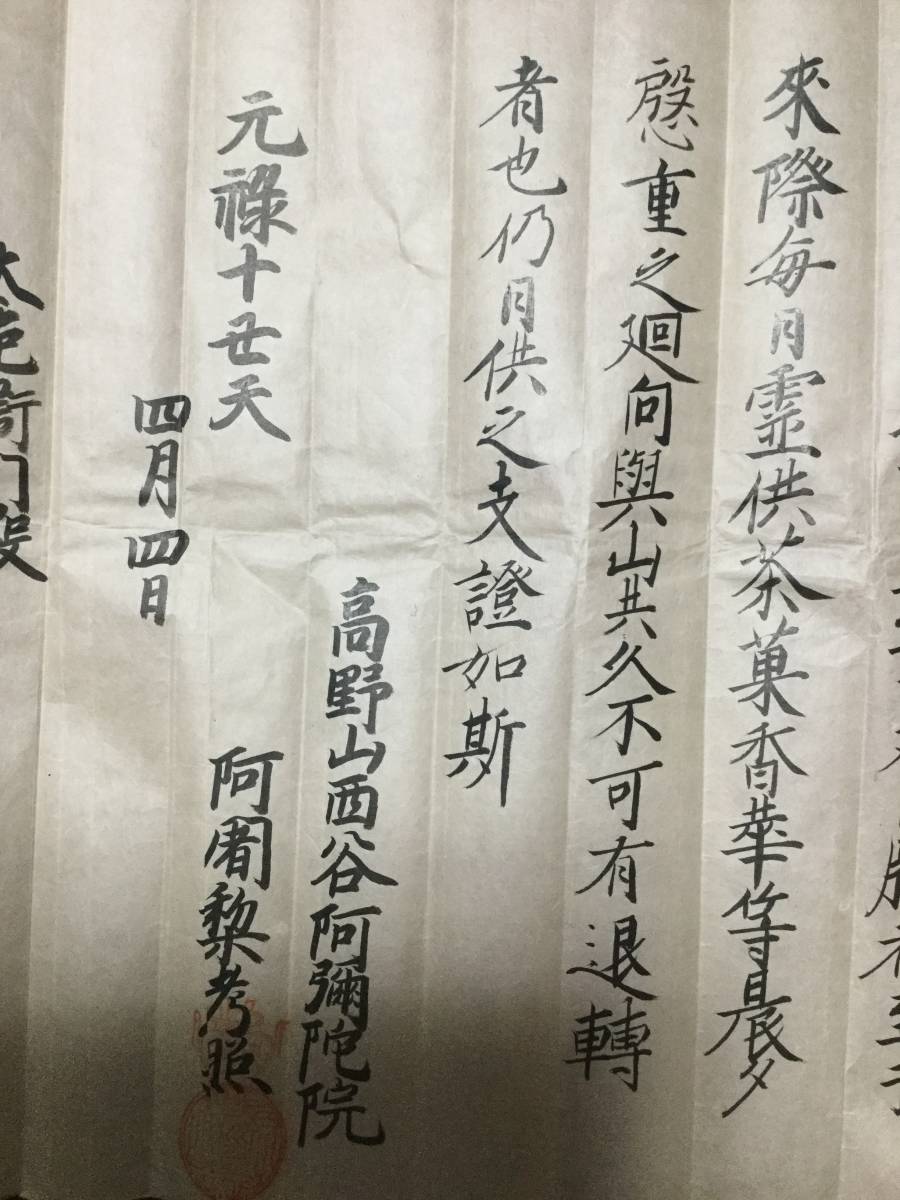 者至于
來際每月霊供茶菓香華等晨夕
慇重之廻向與山共久不可有退轉
者也仍月供之支證如斯
高野山西谷阿彌陀院
元祿十丑天
阿闍梨考照
四月四日
門殿